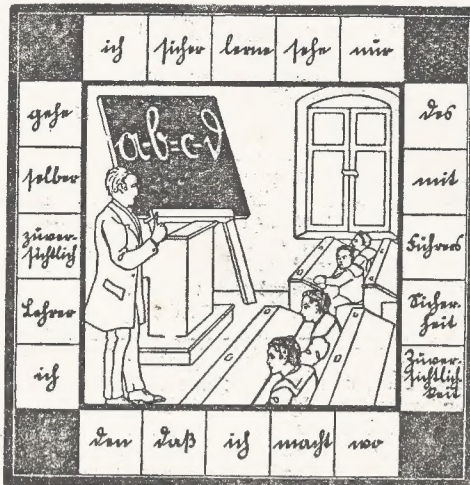 ich sicher lerne sehe nur
gehe
selber
zuver-
sichtlich
Lehrer
ich
a-b=c-d
des
mit
Führers
Sicher-
heit
Zuver-
sichtlich-
keit
den daß ich macht wo